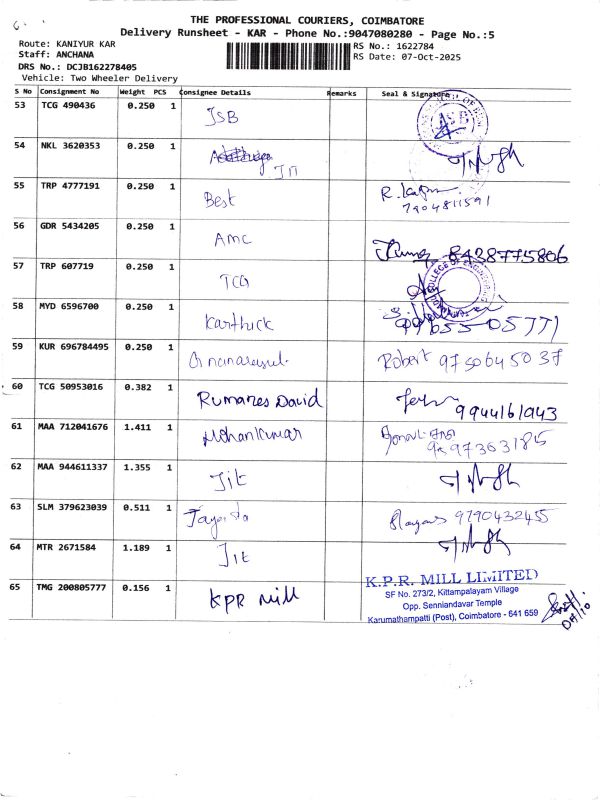 THE PROFESSIONAL COURIERS, COIMBATORE
Delivery Runsheet - KAR - Phone No.:9047080280 - Page No.:5
Route: KANIYUR KAR
RS No.: 1622784
Staff: ANCHANA
RS Date: 07-Oct-2025
DRS No.: DCJB162278405
Vehicle: Two Wheeler Delivery
S No Consignment No Weight PCS Consignee Details Remarks Seal & Signature
53 TCG 490436 0.250 1 JSB
54 NKL 3620353 0.250 1 JIT
55 TRP 4777191 0.250 1 Best
7904811591
56 GDR 5434205 0.250 1 AMC
8438775806
57 TRP 607719 0.250 1 TCG
COLLEGE OF ENGINEERING
58 MYD 6596700 0.250 1 Karthick
59 KUR 696784495 0.250 1 Robert 9750645037
60 TCG 50953016 0.382 1 Rumanes David
9944161943
61 MAA 712041676 1.411 1 Mohankumar
62 MAA 944611337 1.355 1 Jit
63 SLM 379623039 0.511 1 9790432455
64 MTR 2671584 1.189 1 Jit
65 TMG 200805777 0.156 1 KPR Mill
K.P.R. MILL LIMITED
SF No. 273/2, Kittampalayam Village
Opp. Senniandavar Temple
Karumathampatti (Post), Coimbatore - 641 659